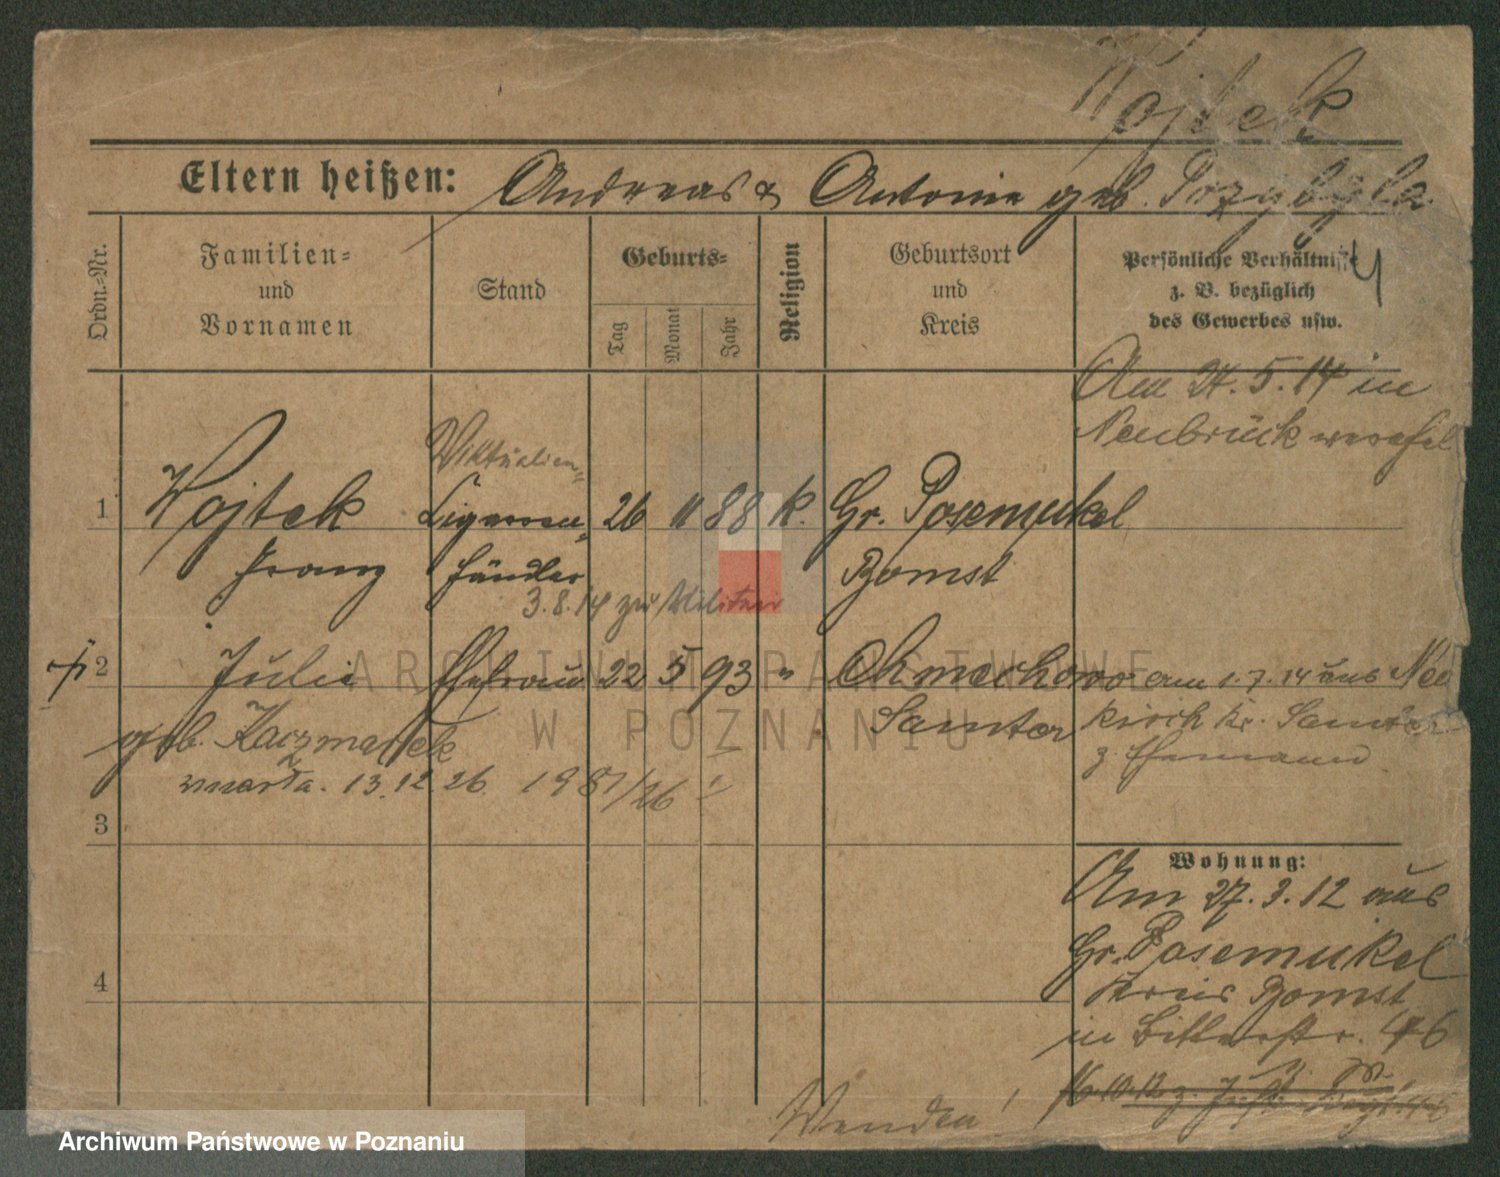 Wojtek
Eltern heißen: Andreas & Antonie geb. Przybyla
Ordn.-Nr.
Familien-
und
Vornamen
Stand
Geburts-
Tag
Monat
Jahr
Religion
Geburtsort
und
Kreis
Persönliche Verhältnisse
z. B. bezüglich
des Gewerbes usw.
Am 24. 5. 14 in
Neubrück
Viktualien-
1 Wojtek Cigarren- 26 11 88 k. Gr. Posemukel
Franz händler Bomst
3. 8. 14 zu Militär
2 Julie Ehefrau 22 5 93 " Chmechowo am 1. 7. 14 aus Neu
geb. Kaczmarek Samter kirch Kr. Samter
z. Ehemann
zmarła. 13. 12. 26. 1981/26
3
Wohnung:
Am 27. 3. 12 aus
Gr. Posemukel
4
Kreis Bomst
in Bitterstr. 46
16. 10. 12 z.
Wenden!
ARCHIWUM PAŃSTWOWE
W POZNANIU
Archiwum Państwowe w Poznaniu